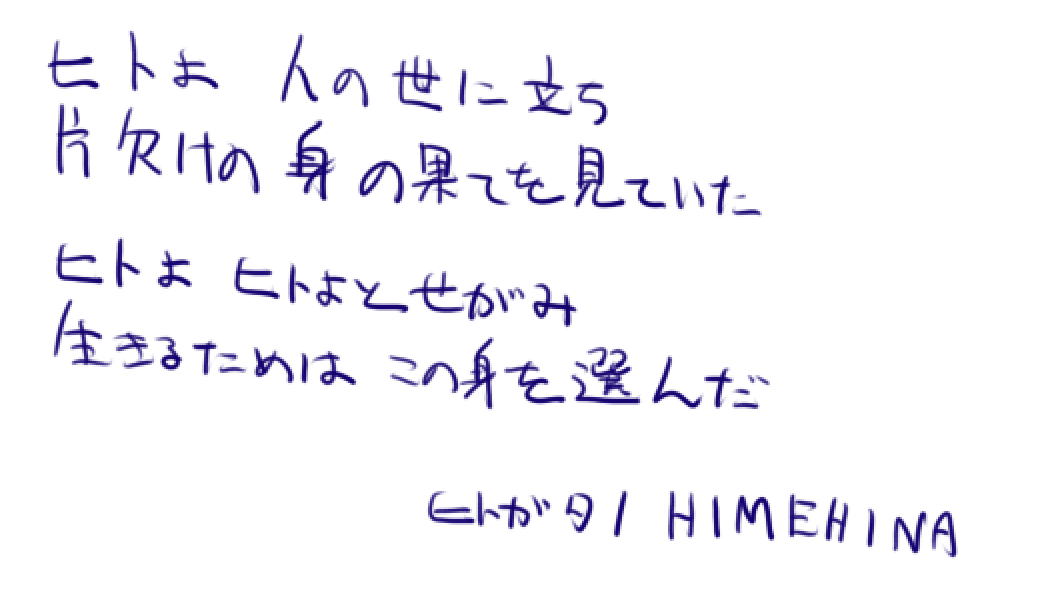 ヒトよ 人の世に立ち
片欠けの身の果てを見ていた
ヒトよ ヒトよとせがみ
生きるためは この身を選んだ
ヒトガタ / HIMEHINA